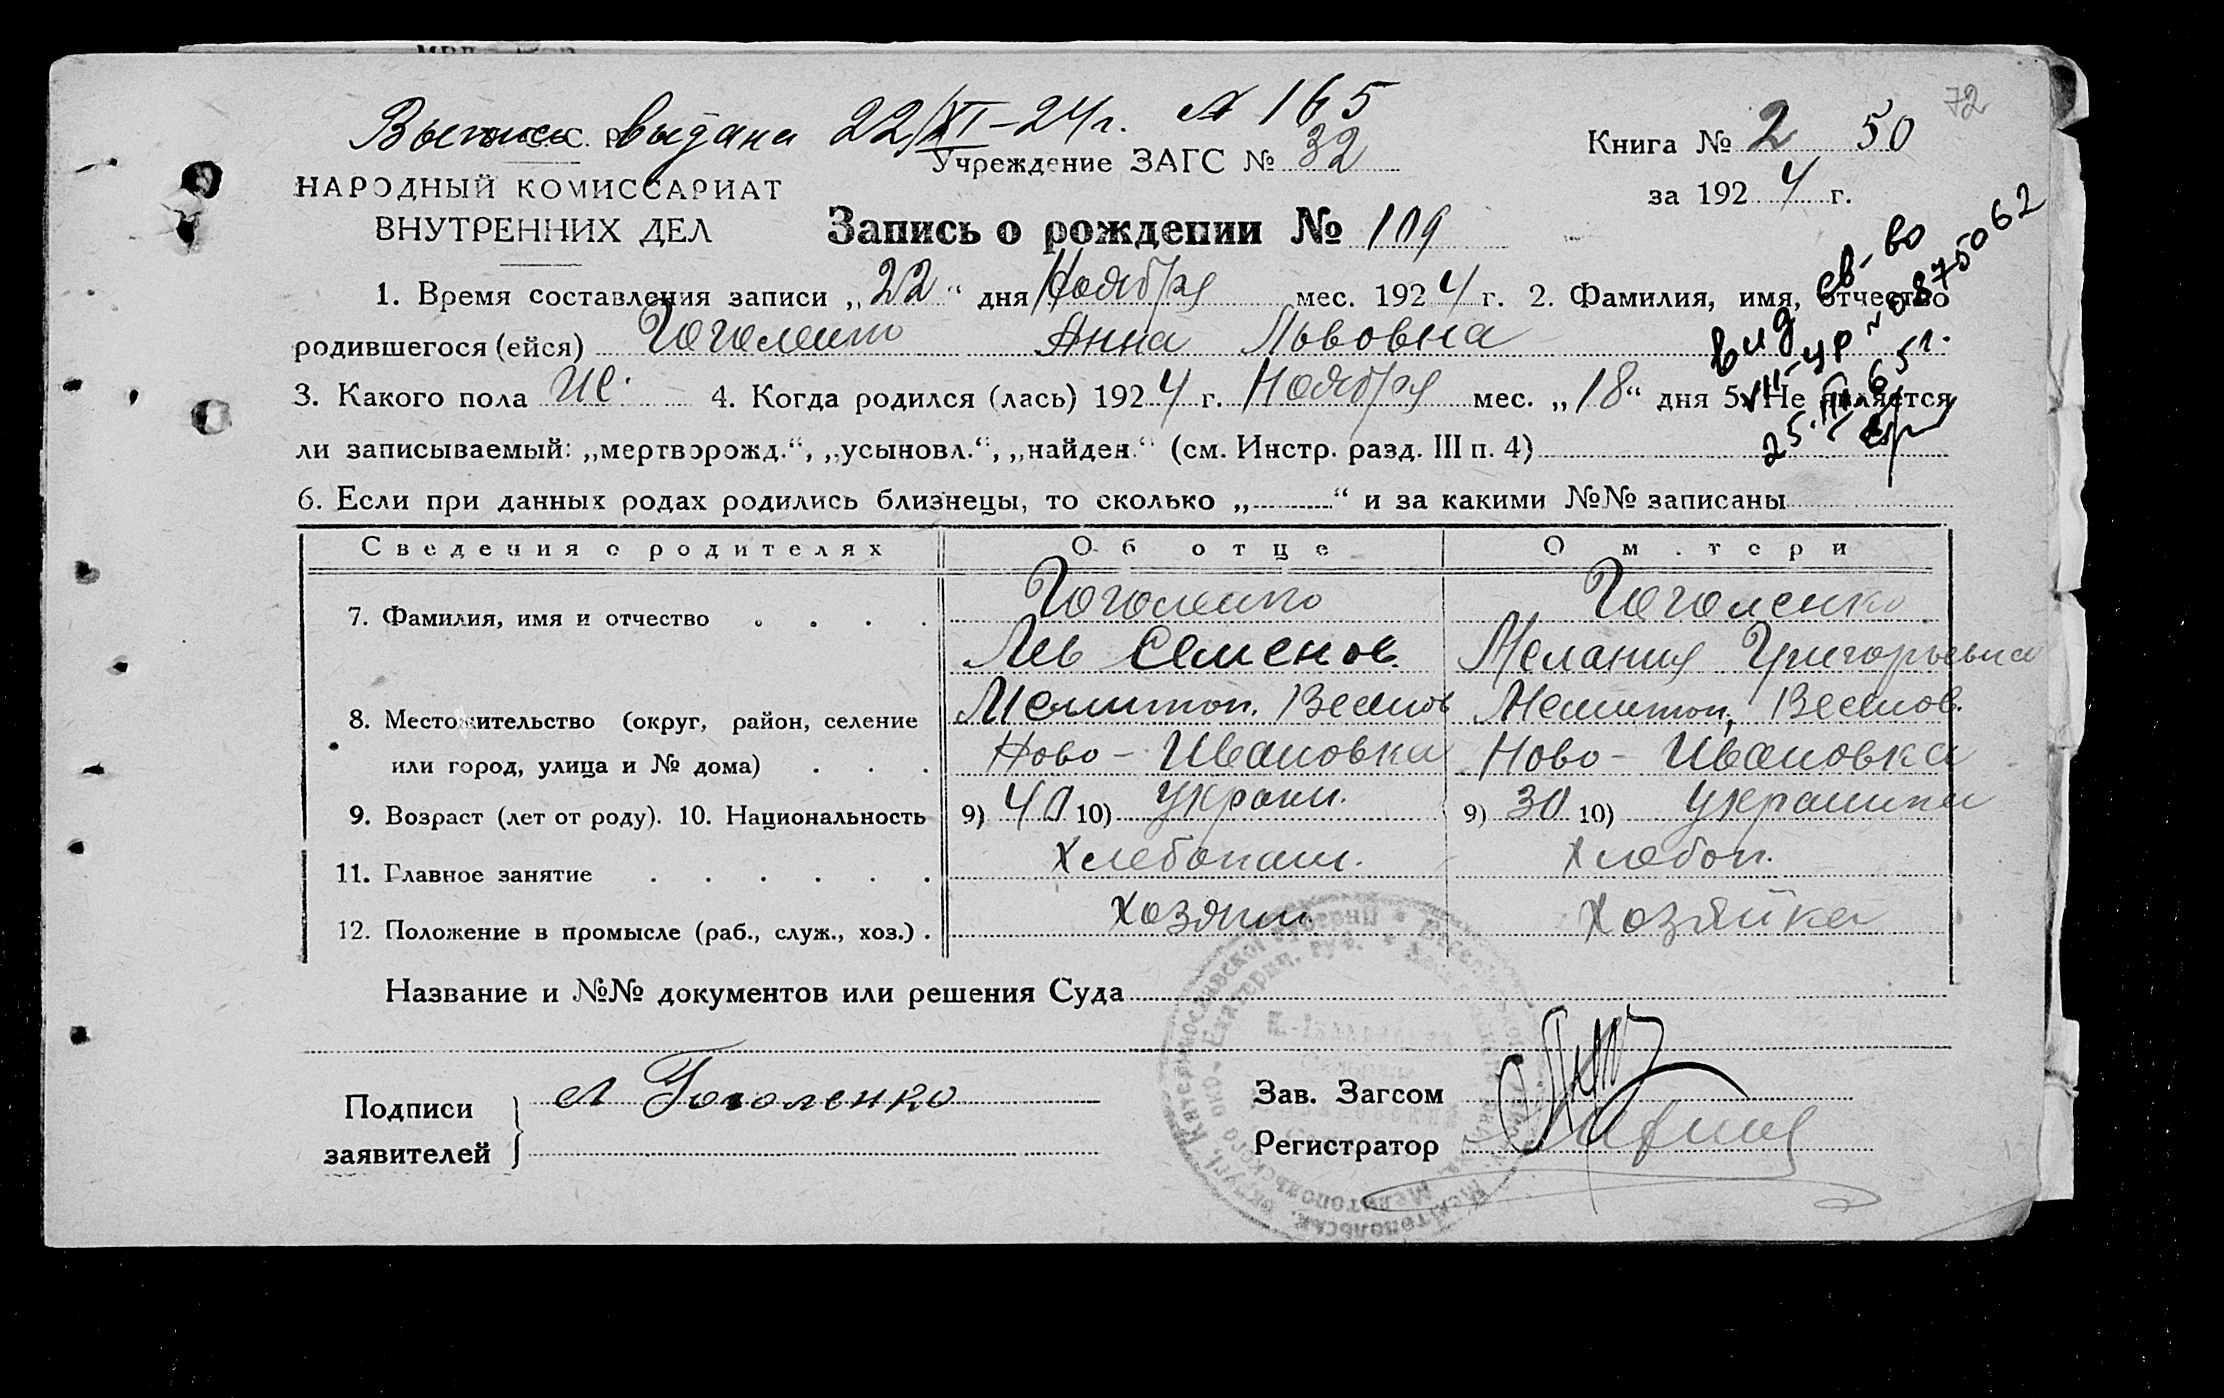 72
Выпись выдана 22/XI-24г. № 165
Учреждение ЗАГС № 32
Книга № 2 50
за 1924 г.
НАРОДНЫЙ КОМИССАРИАТ
ВНУТРЕННИХ ДЕЛ
Запись о рождении № 109
1. Время составления записи „22“ дня Ноября мес. 1924 г. 2. Фамилия, имя, отчество
родившегося (ейся) Гоголенко Анна Львовна
3. Какого пола Ж. 4. Когда родился (лась) 1924 г. Ноября мес. „18“ дня 5. Не является
ли записываемый: „мертворожд.“, „усыновл.“, „найден.“ (см. Инстр. разд. III п. 4)
6. Если при данных родах родились близнецы, то сколько „ “ и за какими №№ записаны
св-во
25.III 65 г.
Сведения о родителях Об отце О матери
7. Фамилия, имя и отчество Гоголенко Гоголенко
Лев Семенов. Мелания Григорьевна
8. Местожительство (округ, район, селение Мелитоп. Веселов Мелитоп, Веселов.
или город, улица и № дома) Ново-Ивановка Ново-Ивановка
9. Возраст (лет от роду). 10. Национальность 9) 40 10) Украин. 9) 30 10) Украинка
11. Главное занятие Хлебопаш. Хлебоп.
12. Положение в промысле (раб., служ., хоз.) Хозяин. Хозяйка
Название и №№ документов или решения Суда
Подписи
заявителей
Л Гоголенко
Зав. Загсом
Регистратор